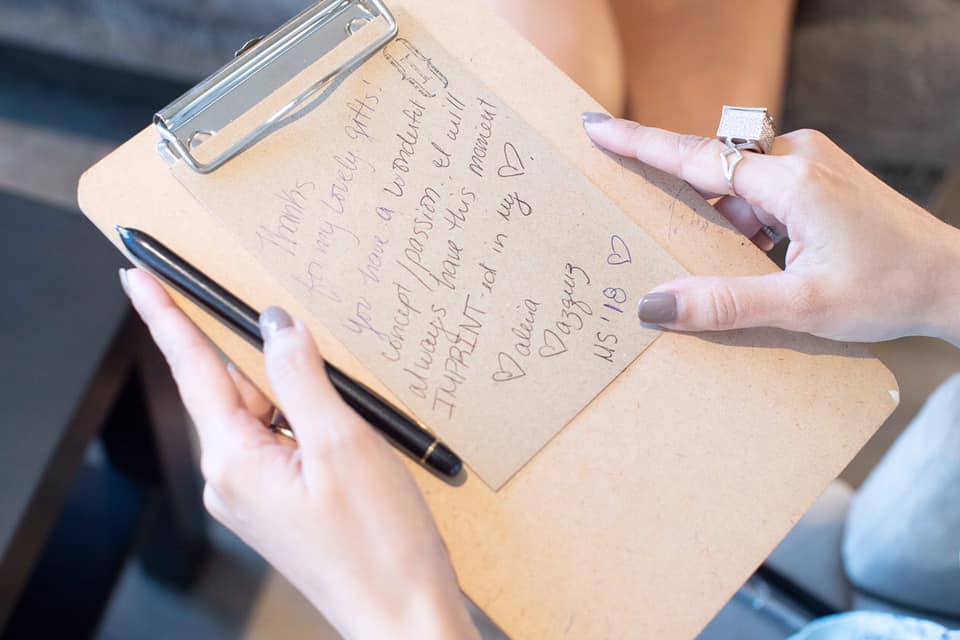 Thanks
for my lovely gifts!
You have a wonderful
concept/passion. I will
always have this moment
IMPRINT-ed in my ♡.
♡ aleia
♡ azzguz
NS '18 ♡